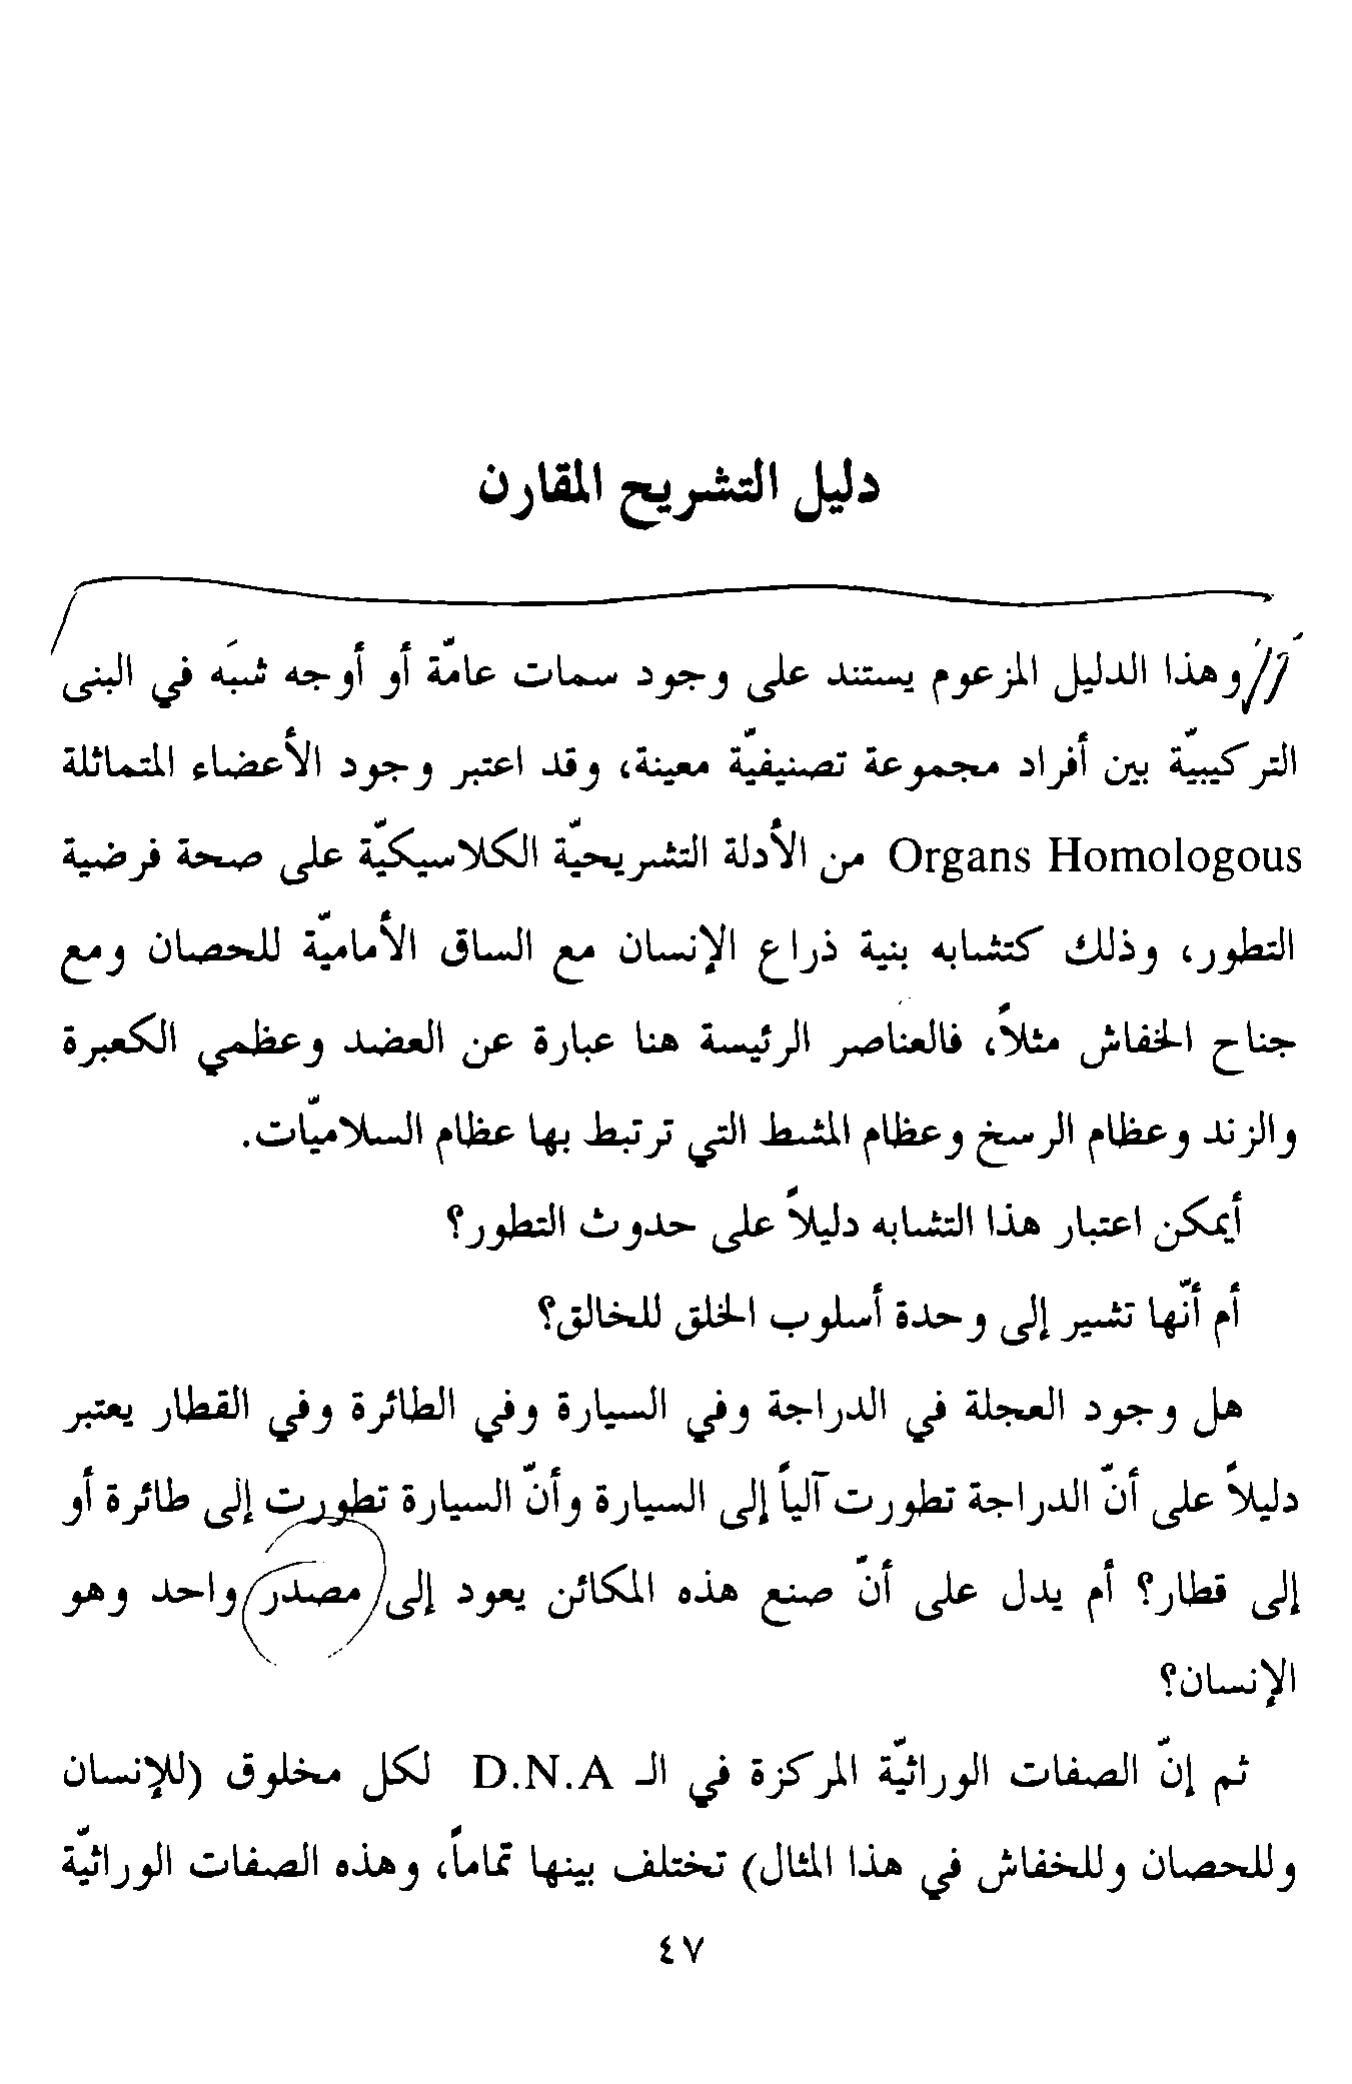 دليل التشريح المقارن
وهذا الدليل المزعوم يستند على وجود سمات عامّة أو أوجه شبَه في البنى
التركيبيّة بين أفراد مجموعة تصنيفيّة معينة، وقد اعتبر وجود الأعضاء المتماثلة
Organs Homologous من الأدلة التشريحيّة الكلاسيكيّة على صحة فرضية
التطور، وذلك كتشابه بنية ذراع الإنسان مع الساق الأماميّة للحصان ومع
جناح الخفاش مثلاً، فالعناصر الرئيسة هنا عبارة عن العضد وعظمي الكعبرة
والزند وعظام الرسخ وعظام المشط التي ترتبط بها عظام السلاميّات.
أيمكن اعتبار هذا التشابه دليلاً على حدوث التطور؟
أم أنّها تشير إلى وحدة أسلوب الخلق للخالق؟
هل وجود العجلة في الدراجة وفي السيارة وفي الطائرة وفي القطار يعتبر
دليلاً على أنّ الدراجة تطورت آلياً إلى السيارة وأنّ السيارة تطورت إلى طائرة أو
إلى قطار؟ أم يدل على أنّ صنع هذه المكائن يعود إلى مصدر واحد وهو
الإنسان؟
ثم إنّ الصفات الوراثيّة المركزة في الـ D.N.A لكل مخلوق (للإنسان
وللحصان وللخفاش في هذا المثال) تختلف بينها تماماً، وهذه الصفات الوراثيّة
٤٧